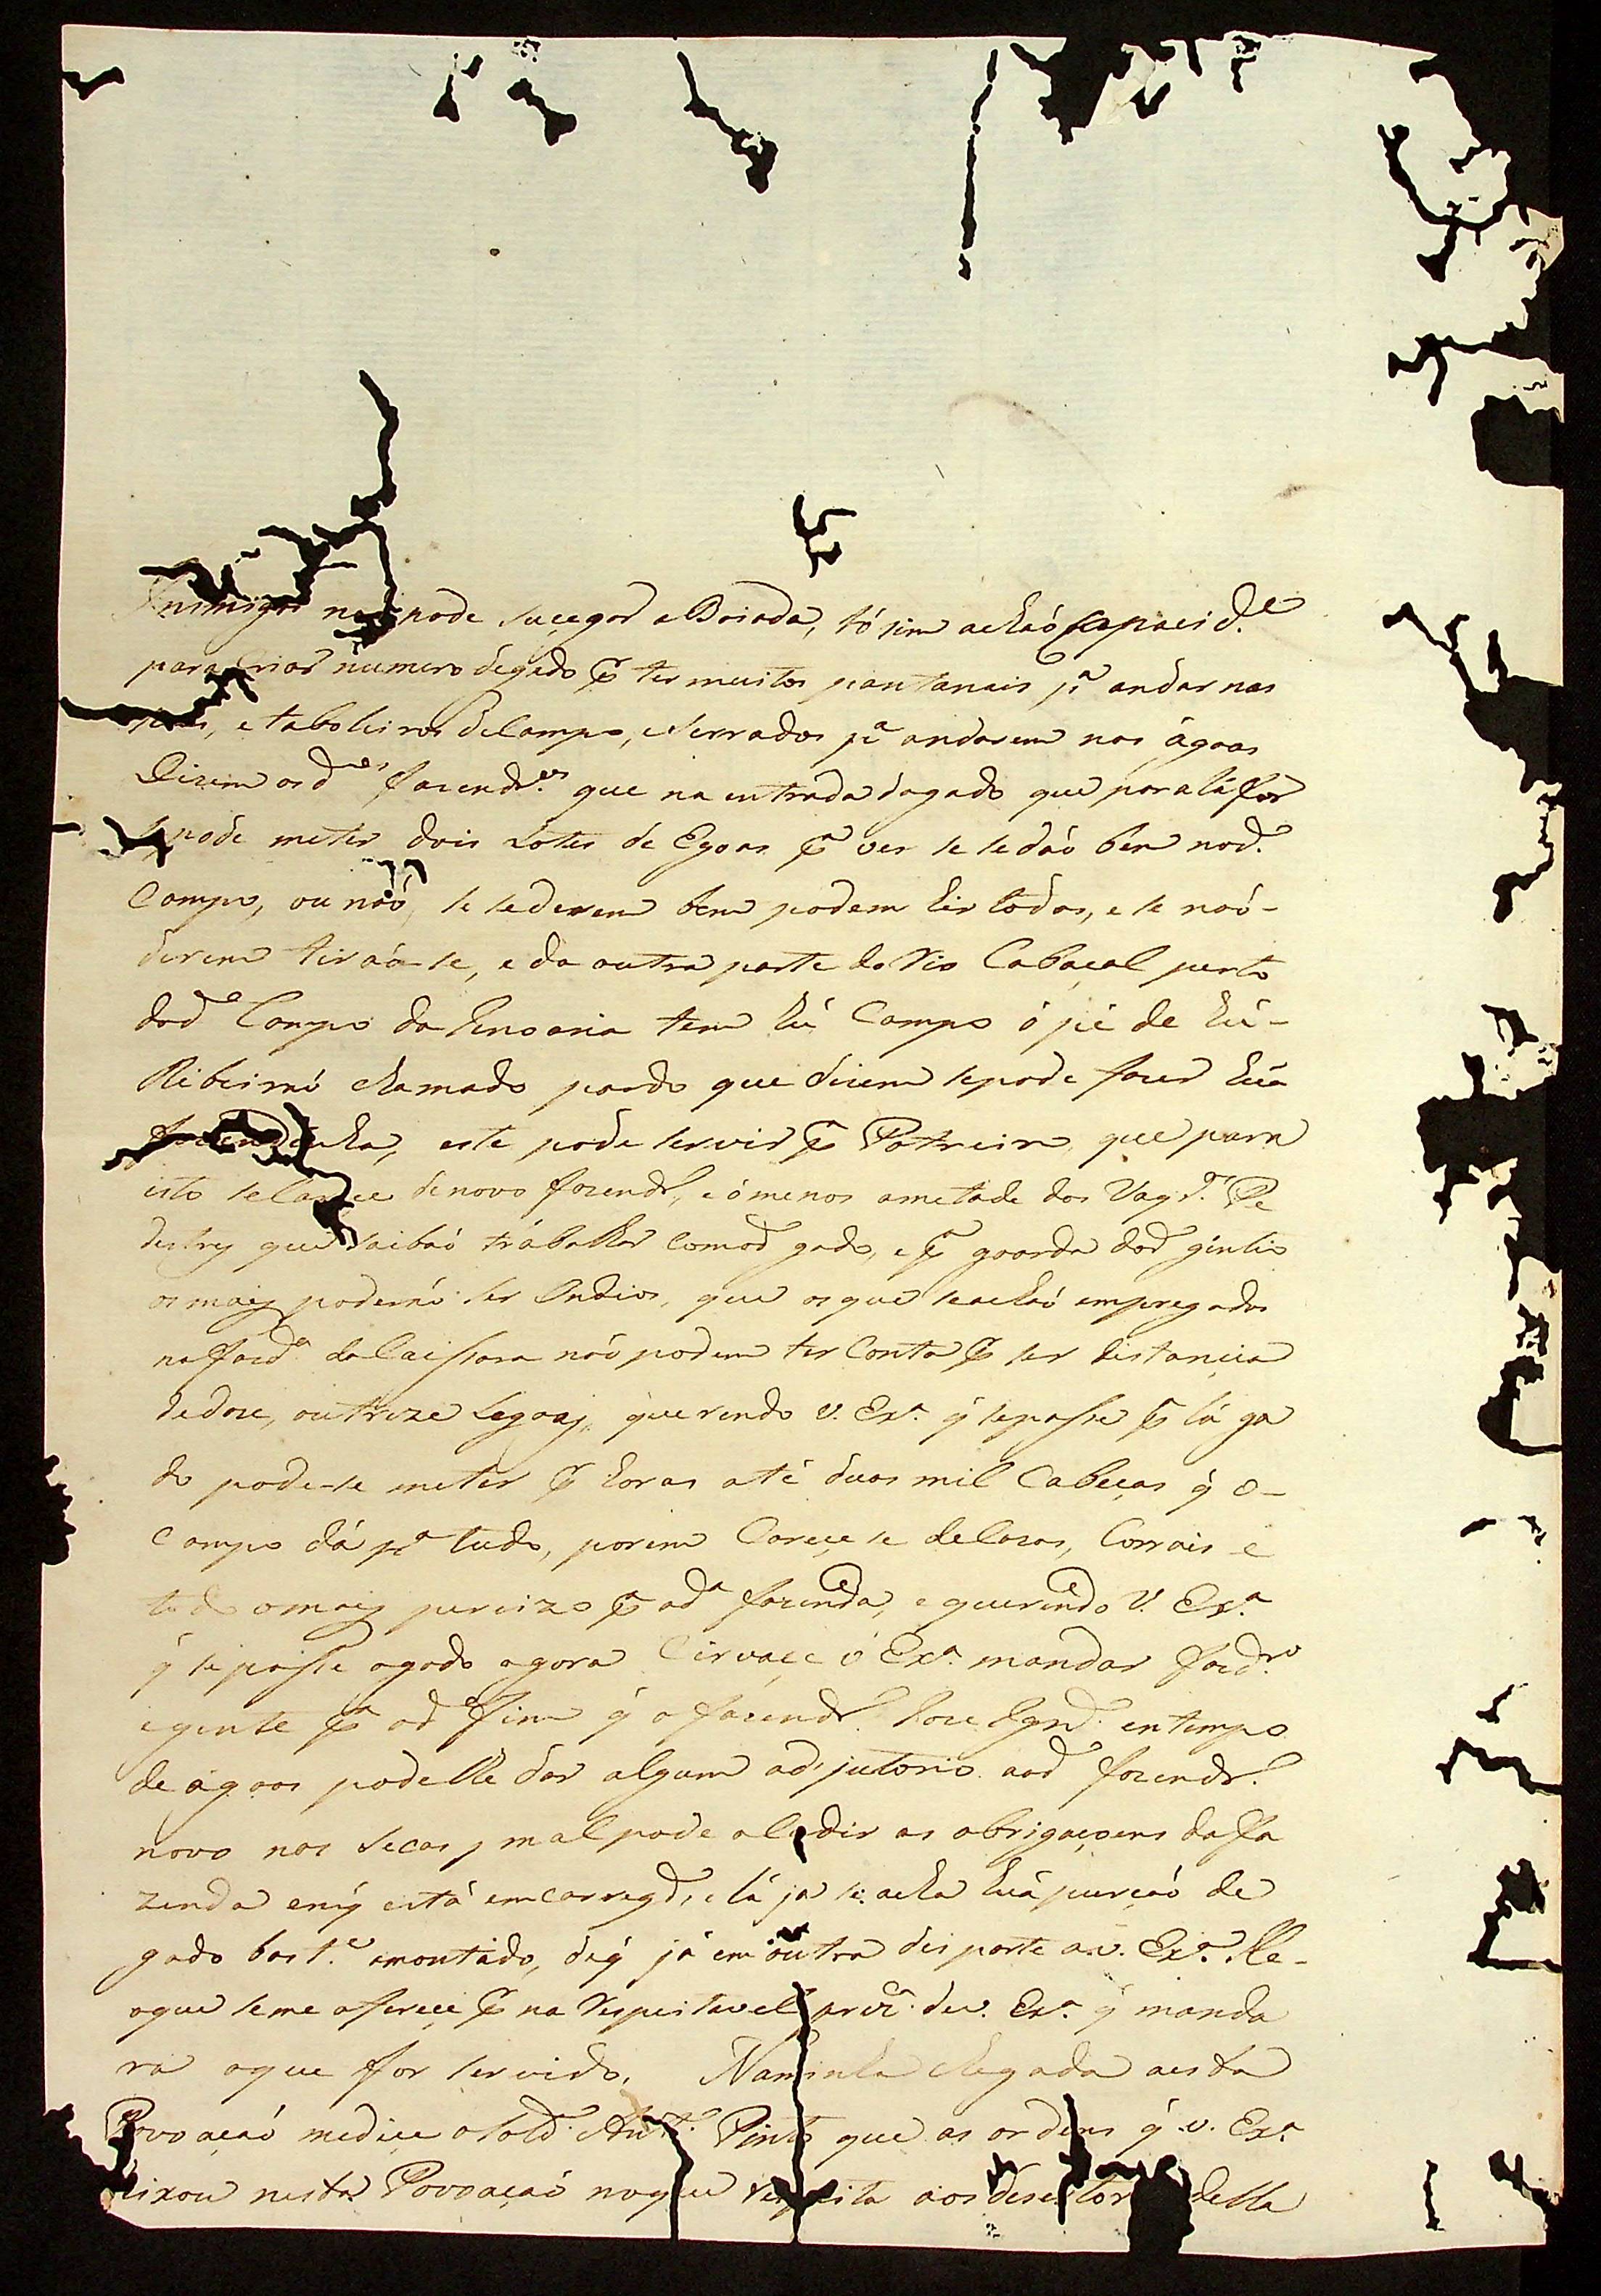 Inimigos não pode suçegar a Boiada, só sim achaó Capacid.e
para Criar numero degado p.r ter muitos pantanais p.a andar nas
secas, e taboleiros deCampo, eserrados p.a andarem nas ágoas
Dizem os d.os fazendr.os que na entrada dogado que para lá for
se pode meter dois Lotes de Egoas p.a ver se sedaó bem nod.o
Campo, ou naó, se sederem bem podem hir todas, e se naó-
derem tiraó-se, e da outra parte do Rio Cabaçal perto
dod.o Campo da tem hú Campo ó pé de hú-
Ribeiraó chamado pardo que dizem sepode fazer húa
fazendinha, este pode servir p.a Potreiro, que para
isto selançe denovo fazendr.o, e ómenos ametade dos Vaqr.os Pe
destres que saibaó trabalhar comod.o gado, e p.a goarda dod.o gentio
os mais poderáo ser Indios, que osque seachaó empregados
nafazd.a daCaissara naó podem ter Conta p.r ser distançia
dedoze, outreze Legoas, querendo V. Ex.a q̃ sepasse p.a lá ga
do pode-se meter p.r horas até duas mil Cabeças q̃ o-
Campo dá p.a tudo, porem Careçe se deCazas, Currais e
tudo omais percizo p.a ad.a fazenda, e querendo V. Ex.a
q̃ sepasse ogado agora Cirvaçe V Ex.a mandar fazdr.o
egente p.a od.o fim q̃ o fazendr.o Joze em tempo
de ágoas podelhe dar algum adjutorio aod.o fazendr.o
novo nas secas, mal pode alodir as obrigaçoens dafa
zenda emq̃ está emcarregd.o, e lá ja se acha húa purçaó de
gado bast.e amontado, deq̃ já em outra dei parte a V. Ex.a He-
oque seme ofereçe p.r na Respeitavel prez.ça de V. Ex.a q̃ manda
rá oque for servido. Naminha chegada aesta
Povoaçaó mediçe o Sold.o Ant.o Pinto que as ordens q̃ V. Ex.a
deixou nesta Povoaçaó noque respeita aos desertores della